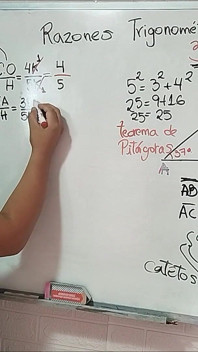 Razones Trigonomé
CO/H = 4K/5K = 4/5
A/H = 3
5² = 3² + 4²
25 = 9+16
25 = 25
teorema de
Pitágoras
37°
A
AB
AC
catetos